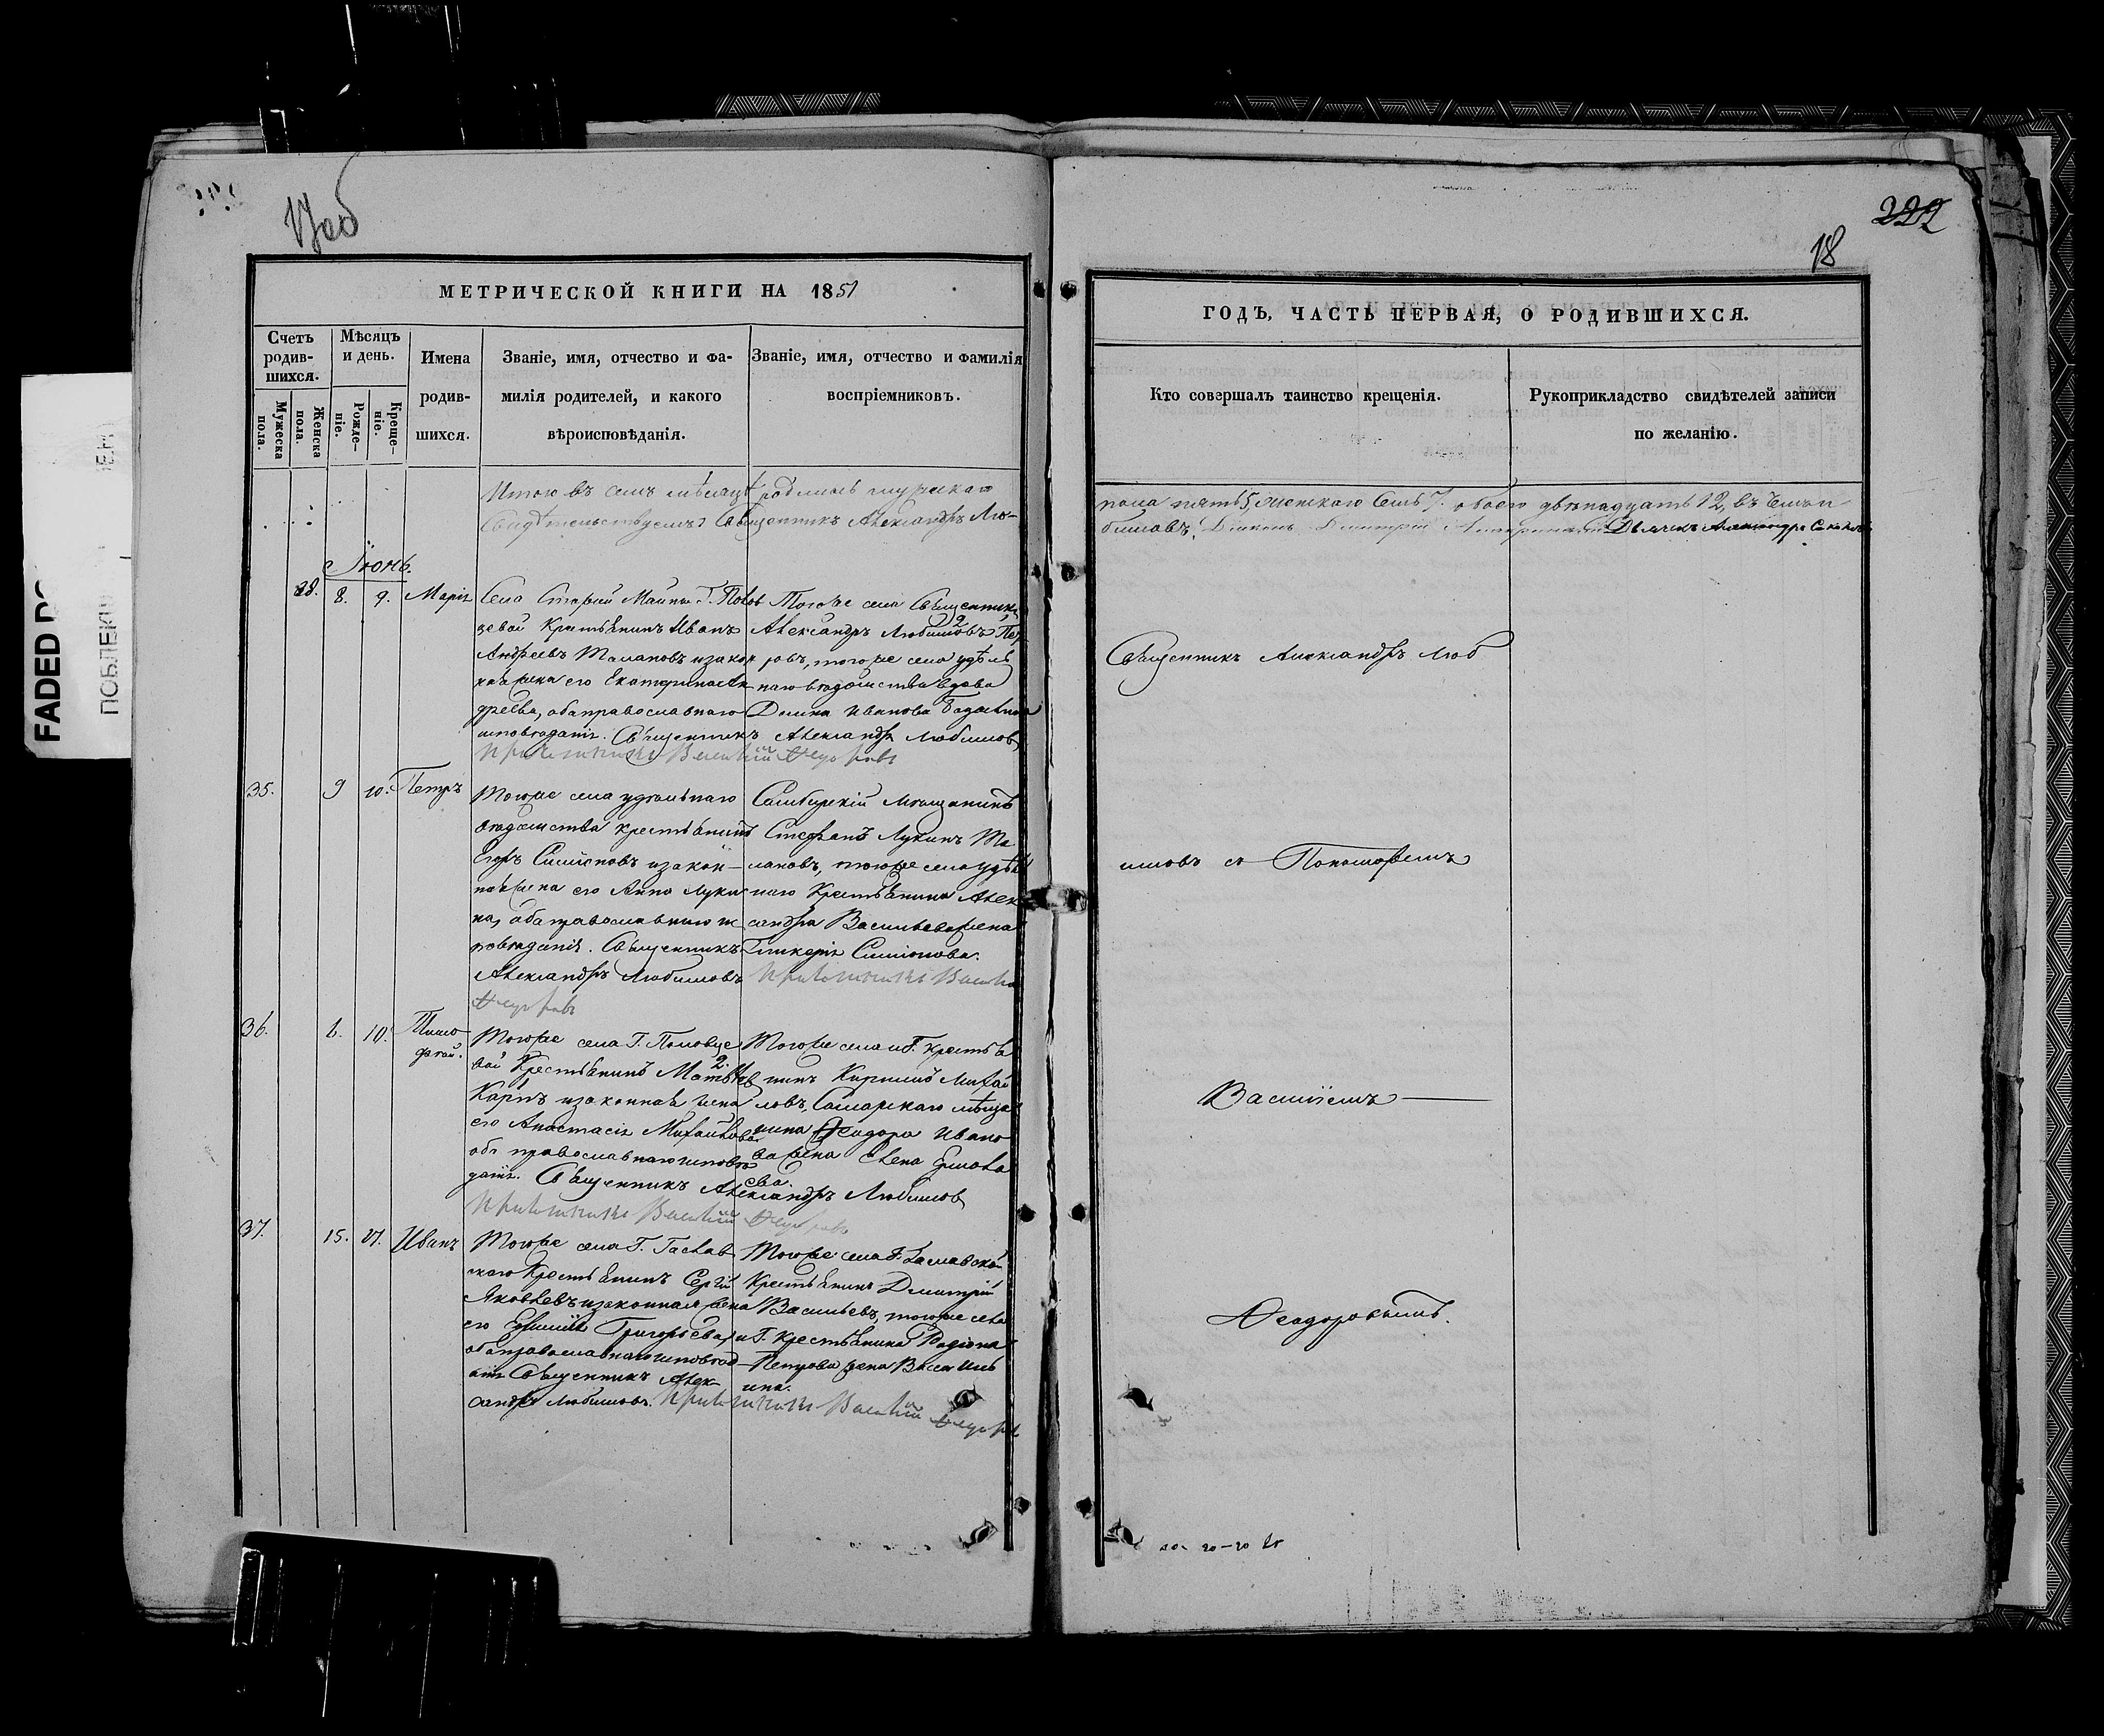 222
18
МЕТРИЧЕСКОЙ КНИГИ НА 1851
Счетъ родив-шихся.
Мужеска пола.
Женска пола.
Мѣсяцъ и день.
Рожде-ніе.
Креще-ніе.
Имена родив-шихся.
Званіе, имя, отчество и фа-
милія родителей, и какого
вѣроисповѣданія.
Званіе, имя, отчество и фамилія
воспріемниковъ.
Итого въ семъ мѣсяцѣ родилось мужескаго
Свидѣтельствуемъ: Священникъ Александръ Лю-
Іюнь.
28. 8. 9. Марія
Села Старой Майны Г.
зевой Крестьянинъ Иванъ
Андреевъ Талановъ и закон
ная жена его Екатерина Ан
дреева, оба православнаго
исповѣданія. Священникъ Александръ Любимовъ
Тогоже села Священникъ
Александръ Любимовъ 2
ровъ, тогоже села удѣль
наго вѣдомства вдова
Домна Иванова
Василій Федоровъ
35. 9 10. Петръ
Тогоже села удѣльнаго
вѣдомства крестьянинъ
Егоръ Симеоновъ и закон-
ная жена его Анна Луки
на, оба православнаго ис
повѣданія. Священникъ
Александръ Любимовъ
Самбирскій мѣщанинъ
Стефанъ Лукинъ Та
лановъ, тогоже села удѣль
наго Крестьянина Алек
сандра Васильева жена
Гликерія Симионова.
Федоровъ
36. 6. 10. Тимо
фей.
Тогоже села Г.
вой Крестьянинъ Матвѣй
Карпъ и законная жена
его Анастасія Михайлова
оба православнаго исповѣ
данія. Священникъ Александръ Любимовъ
Тогоже села и Г. крестья
нинъ Кириллъ Михай
ловъ, Самарскаго мѣща
нина Ѳеодора Ивано
ва жена Елена Ермола
ева.
Василій Федоровъ
37. 15. 17. Иванъ
Тогоже села Г. Заслав
скаго Крестьянинъ Сергій
Яковлевъ и законная жена
его Евфимія Григорьева,
оба православнаго исповѣд
анія Священникъ Алек
сандръ Любимовъ.
Тогоже села Г. Заславской
Крестьянинъ Дмитрій
Васильевъ, тогоже села
и Г. Крестьянина Родіона
Петрова жена Васси
лина.
Василій Федоровъ
ГОДЪ, ЧАСТЬ ПЕРВАЯ, О РОДИВШИХСЯ.
Кто совершалъ таинство крещенія.
Рукоприкладство свидѣтелей записи
по желанію.
пола пять 5, женскаго семь 7. обоего двѣнадцать 12, въ чемъ и
бимовъ. Діаконъ Димитрій Дьячекъ Александръ
Священникъ Александръ Люб
имовъ съ Пономаремъ
Василіемъ
Ѳеодоровымъ.
FADED
ПОБЛЕК